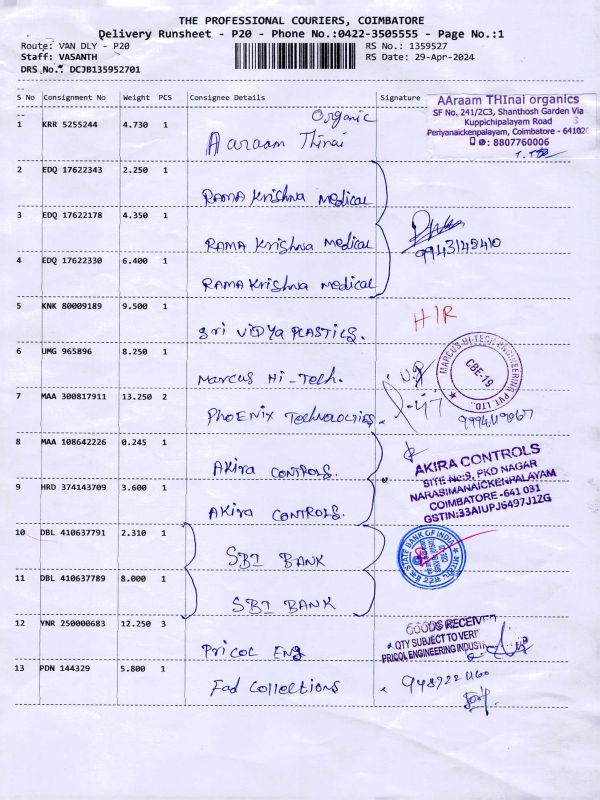 THE PROFESSIONAL COURIERS, COIMBATORE
Delivery Runsheet - P20 - Phone No.:0422-3505555 - Page No.:1
Route: VAN DLY - P20 RS No.: 1359527
Staff: VASANTH RS Date: 29-Apr-2024
DRS No.: DCJB135952701
S No Consignment No Weight PCS Consignee Details Signature
AAraam THInai organics
SF No. 241/2C3, Shanthosh Garden Via
Kuppichipalayam Road
Periyanaickenpalayam, Coimbatore - 64102
: 8807760006
1 KRR 5255244 4.730 1 Aaraam Thinai Organic
2 EDQ 17622343 2.250 1 RAMA Krishna medical
3 EDQ 17622178 4.350 1 RAMA Krishna medical
9943142410
4 EDQ 17622330 6.400 1 RAMA Krishna medical
5 KNK 80009189 9.500 1 Sri VIDYA PLASTICS. HIR
6 UMG 965896 8.250 1 Marcus Hi-Tech.
MARCUS-HI-TECH-ENGINEERING PVT. LTD.
CBE-19
7 MAA 300817911 13.250 2 PHOENIX Technologies
8 MAA 108642226 0.245 1 Akira CONTROLS.
AKIRA CONTROLS
SITE No:9, PKD NAGAR
NARASIMANAICKENPALAYAM
COIMBATORE -641 031
GSTIN:33AIUPJ6497J1ZG
9 HRD 374143709 3.600 1 Akira CONTROLS.
10 DBL 410637791 2.310 1 SBI BANK
STATE BANK OF INDIA
11 DBL 410637789 8.000 1 SBI BANK
12 YNR 250000683 12.250 3 Pricol Eng
GOODS RECEIV
QTY SUBJECT TO VERI
PRICOL ENGINEERING INDUSTR
13 PDN 144329 5.800 1 Fad Collections